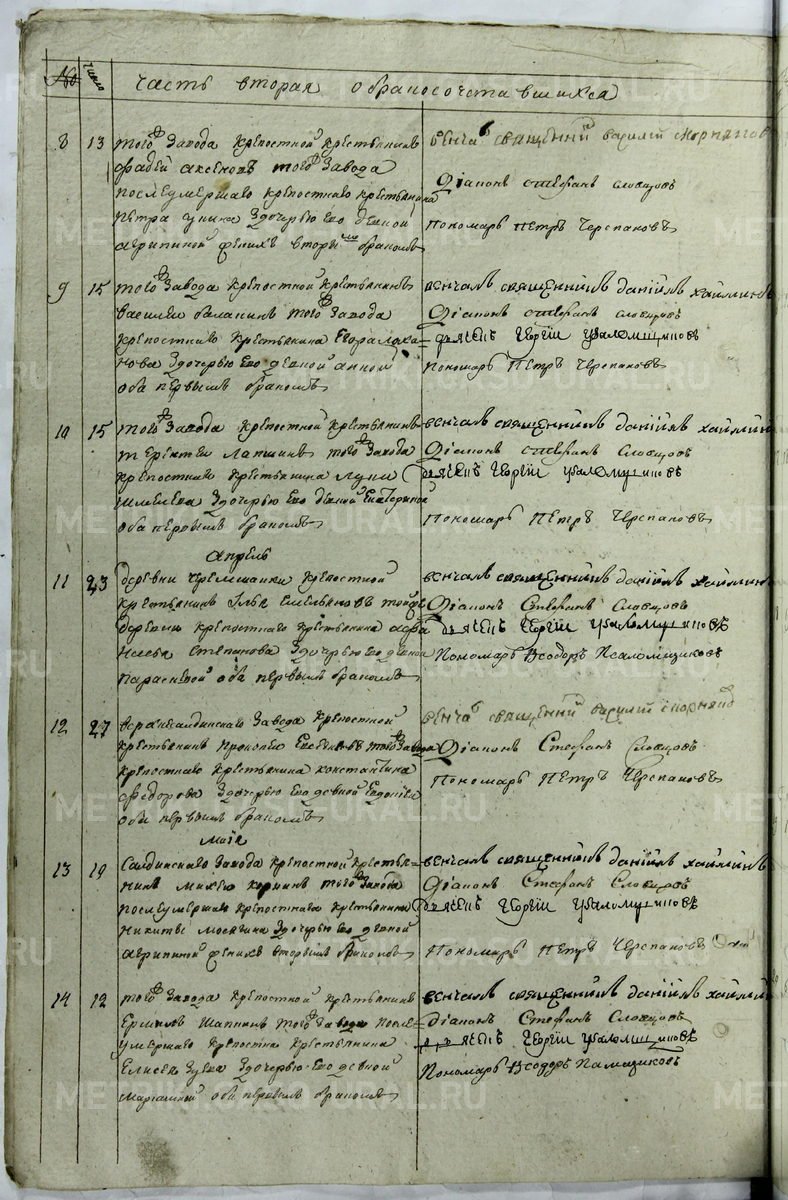 № Число Часть вторая о бракосочетавшихся
8 13 тогоѲ завода крепостной крестьянинъ
фадей аксеновъ тогоѲ завода
послеумершаго крепостнаго крестьянина
Петра здочерью его девкой
агрипиной женихъ вторы браком
венча священний василий
Дiаконъ стефанъ словцовъ
пономарь Петръ Черепановъ
9 15 того завода крепостной крестьянинъ
василей баланинъ того завода
крепостнаго крестьянина Егора
нова здочерью его девкой анной
оба первымъ бракомъ
венчалъ священникъ данiилъ хайлинъ
Дiаконъ стефанъ словцовъ
дьячекъ Георгiи
пономарь Петръ Черепановъ
10 15 того завода крепостной крестьянинъ
терентеи лапшинъ того завода
крепостнаго крестьянина луки
шмелева здочерью его девкой Екатериной
оба первымъ бракомъ
венчалъ священникъ данiилъ хайлин
Дiаконъ стефанъ Словцовъ
дьячекъ Георгiи
пономарь Петръ Черепановъ
апрель
11 23 деревни Чремшанки крепостной
крестьянинъ Илья Емельяновъ тойже
деревни крепостнаго крестьянина
Степанова здочерью его девкой
параскевой оба первымъ бракомъ
венчалъ священникъ данiилъ хайлин
Дiаконъ Стефанъ Словцовъ
дьячекъ Георгiи
Пономарь Ѳеодоръ Псаломщиковъ
12 27 верхнесалдинскаго завода крепостной
крестьянинъ Прокопей того завода
крепостнаго крестьянина константина
федорова здочерью его девкой Евдокiей
оба первымъ бракомъ
венча священний василий
Дiаконъ Стефанъ Словцовъ
Пономарь Петръ Черепановъ
маiя
13 10 Салдинскаго завода крепостной крестья=
нинъ михей того завода
послеумершаго крепостнаго крестьянина
никиты москвина здочерью его девкой
агрипиной женихъ вторымъ браком
венчалъ священникъ данiилъ хайлинъ
Дiаконъ Стефанъ Словцовъ
дьячекъ Георгiи
Пономарь Петръ Черепановъ
14 12 того завода крепостной крестьянинъ
Ермилъ Шапкинъ того завода после
умершаго крепостна крестьянина
Елисея Зуева здочерью его девкой
марiамной оба первымъ бракомъ
венчалъ священникъ данiилъ хайлин
дiаконъ Стефанъ Словцовъ
дьячекъ Георгiи
Пономарь Ѳеодоръ